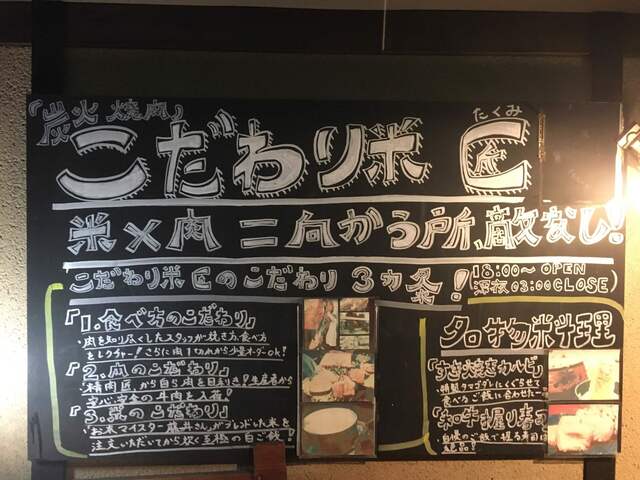 「炭火 焼肉」
こだわり米 匠
たくみ
米×肉 ニ向かう所、敵なし!
こだわり米匠のこだわり 3カ条!
18:00〜 OPEN
深夜03:00 CLOSE)
「1.食べ方のこだわり」
・肉を知り尽くしたスタッフが焼き方、食べ方
をレクチャー!さらに肉1カ月から少量オーダーok!
「2.肉のこだわり」
精肉匠が自ら肉を目利き!生産者から
安心、安全の牛肉を入荷!
「3.米のこだわり」
お米マイスター藤井さんがブレンドした米を
注文いただいてから炊く至極の白ご飯!
名物料理
「すき焼きカルビ」
特製タマゴダレにくぐらせて
食べろ!ご飯に合わせた
「和牛握り寿司
自慢のご飯で握る寿司は
絶品!